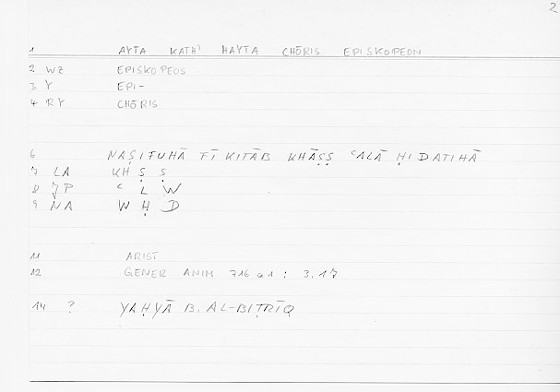 2
1 AYTA KATH' HAYTA CHŌRIS EPISKOPEON
2 WZ EPISKOPEOS
3 Y EPI-
4 RY CHŌRIS
6 NAṢIFUHĀ FĪ KITĀB KHĀṢṢ ʿALĀ ḤIDATIHĀ
7 LA KH Ṣ Ṣ
8 JP ʿ L W
9 NA W Ḥ D
11 ARIST
12 GENER ANIM 716 a 1 : 3.17
14 ? YAḤYĀ B. AL-BIṬRĪQ